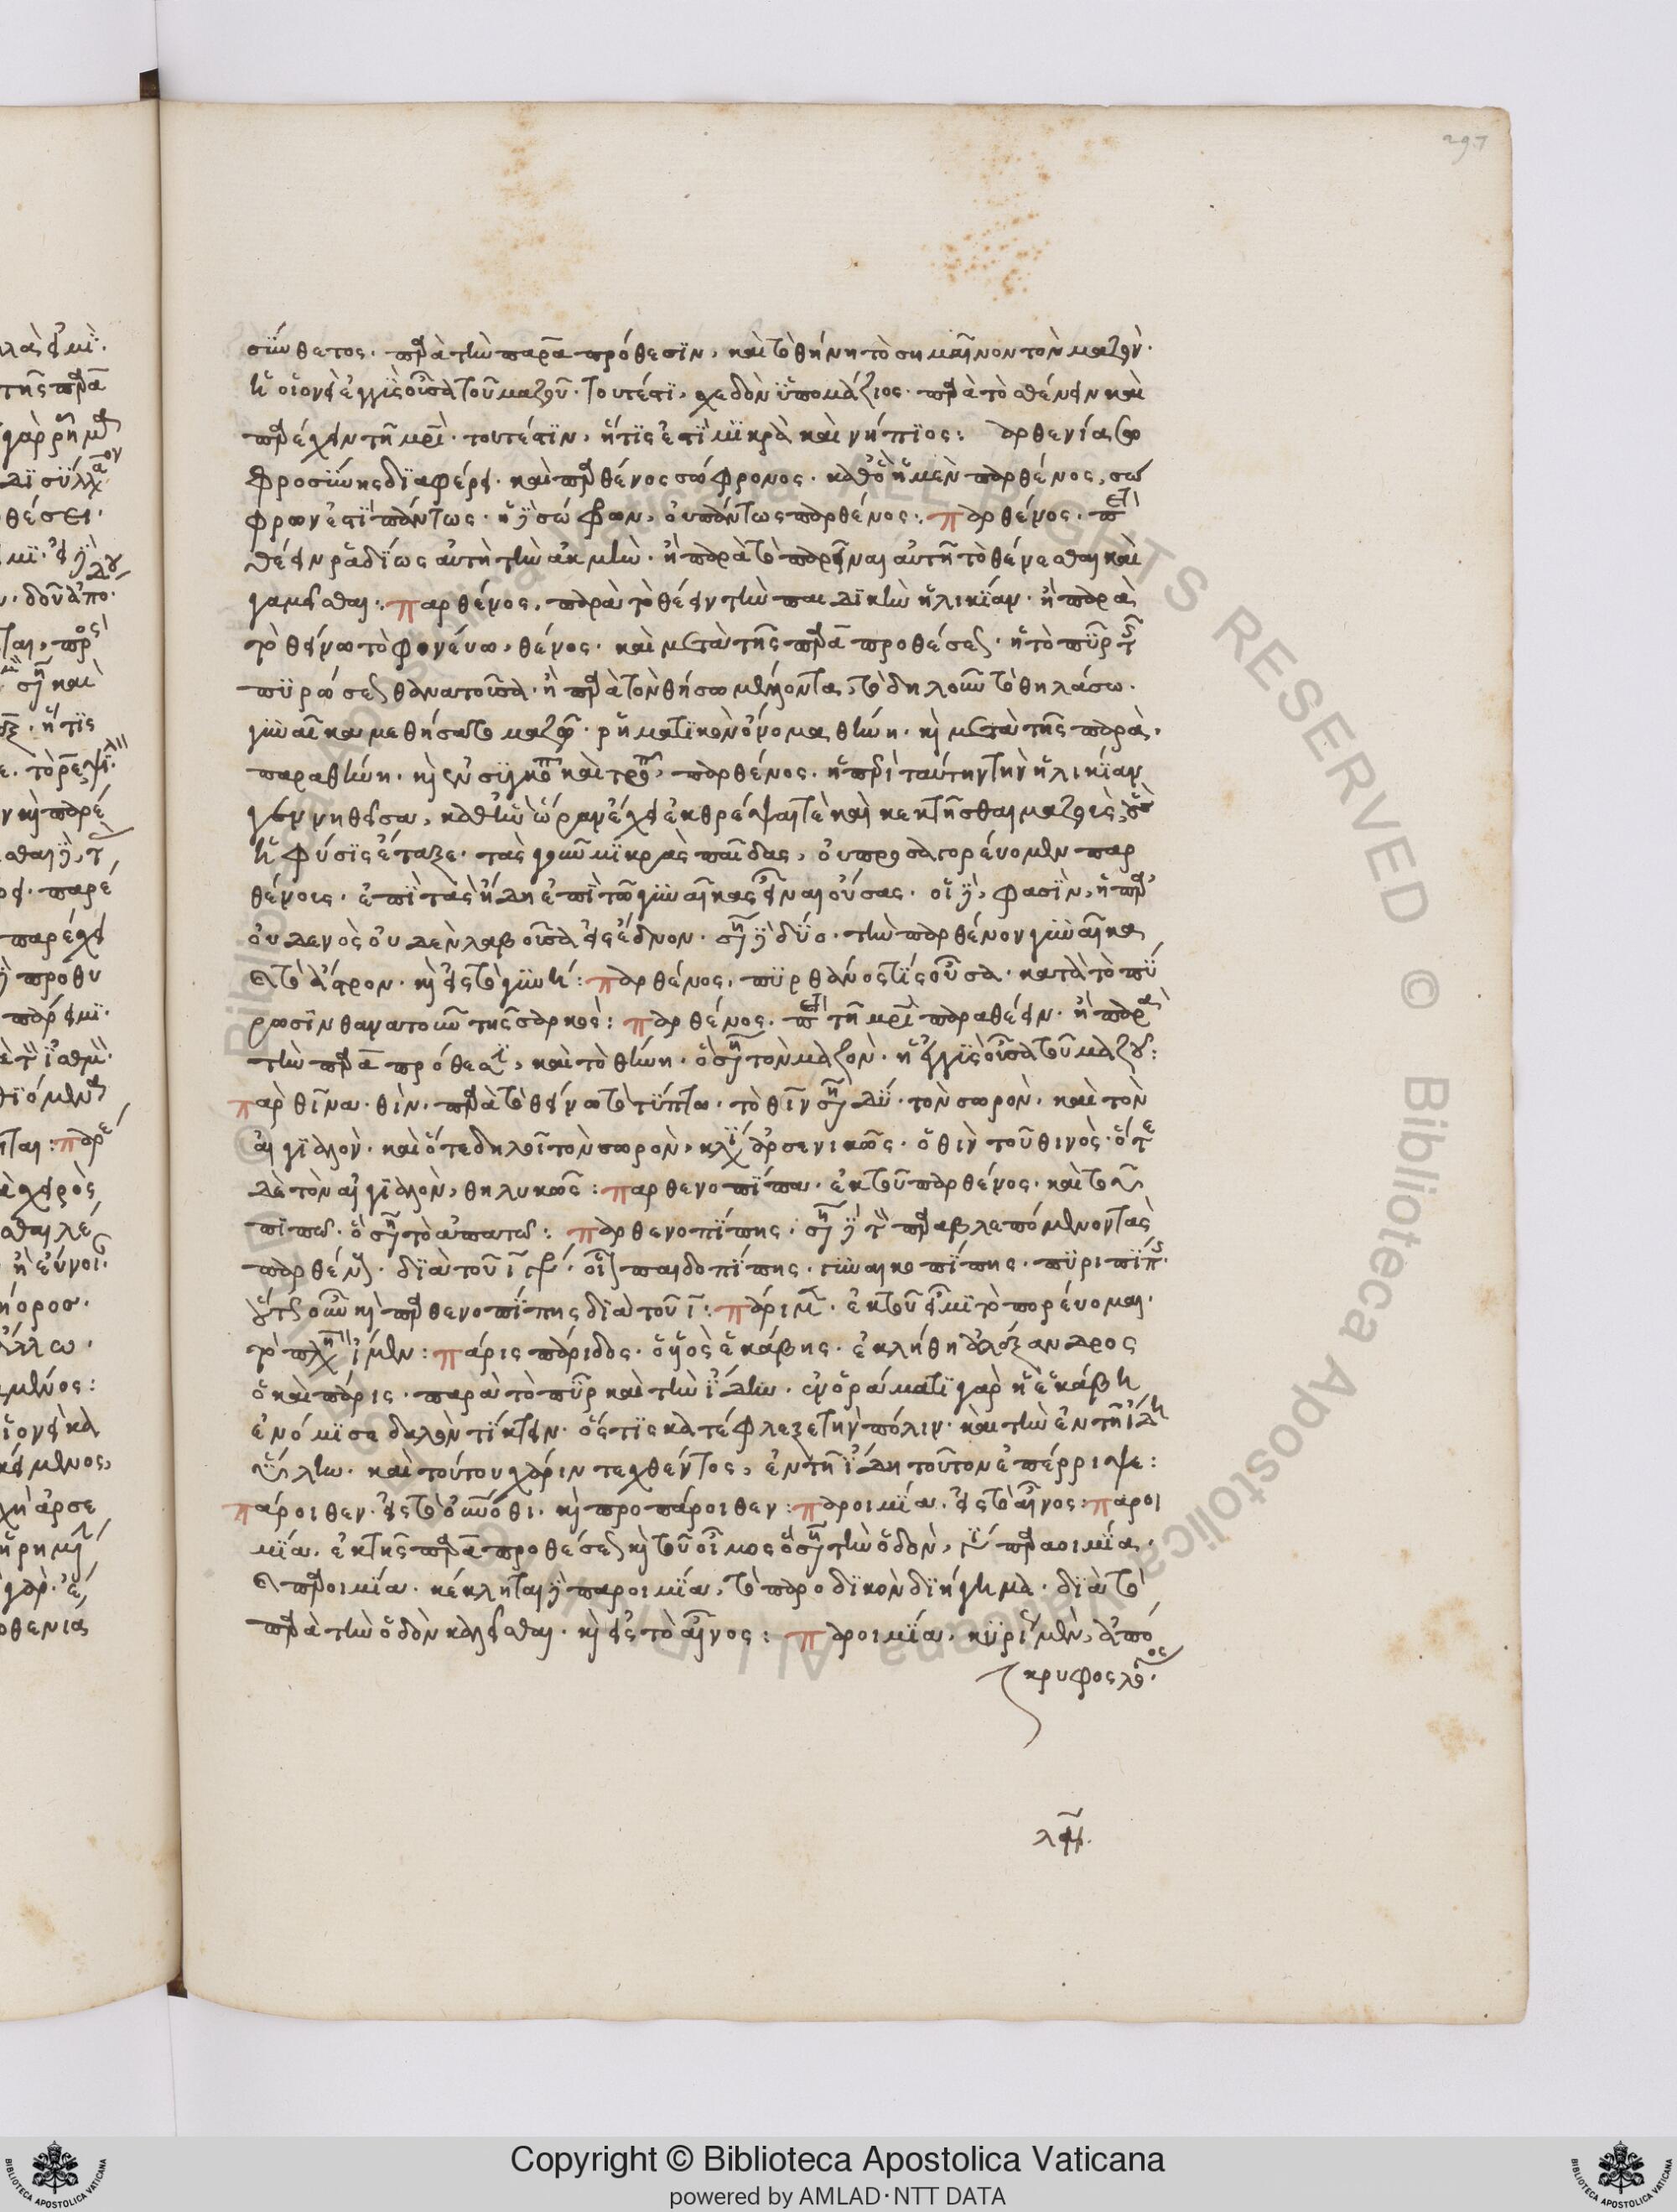 297
σύνθετος. παρὰ τὴν παρὰ πρόθεσϊν, καὶ τὸ θήνη τὸ σημαῖνον τὸν μαζὸν.
ἡ οἱονεὶ ἐγγὺς οὖσα τοῦ μαζοῦ. τουτέστι, σχεδὸν ὑπομάζιος. παρὰ τὸ σθένειν καὶ
παρέχειν τῇ μρὶ. τουτέστϊν, ἥτϊς ἐστὶ μϊκρὰ καὶ νήπϊος: παρθενία σω
φροσύνης διαφέρει. καὶ παρθένος σώφρονος. καθὸ ἡ μὲν παρθένος, σώ
φρων ἐστὶ πάντως. ἡ δὲ σώφρων, οὐ πάντως παρθένος: παρθένος.
θέειν ῥαδίως αὐτὴ τὴν ἀκμὴν. ἢ παρὰ τὸ παρεῖναι αὐτῇ τὸ θένεσθαι καὶ
γαμεῖσθαι: παρθένος, παρὰ τὸ θέειν τὴν παιδικὴν ἡλικίαν. ἢ παρὰ
τὸ θείνω τὸ φονεύω, θένος. καὶ μετὰ τῆς παρὰ προθέσεως. ἡ τὸ πῦρ τῆς
πυρώσεως θανατοῦσα. ἢ παρὰ τὸν θήσω μέλλοντα, τὸ δηλοῦν τὸ θηλάσω.
γυναῖκα με θήσατο μαζόν. ῥηματικὸν ὄνομα θήνη. καὶ μετὰ τῆς παρὰ.
παραθήνη. καὶ ἐν συγκοπῇ καὶ τροπῇ, παρθένος. ἡ περὶ ταύτην τὴν ἡλικίαν
γεννηθεῖσα, καθ' ἣν ὥραν ἔχει ἐκθρέψαι τὲ καὶ κεκτῆσθαι μαζοὺς,
ἡ φύσϊς ἔταξε. τὰς γοῦν μϊκρὰς παῖδας, οὐ προσαγορεύομεν παρ
θένοις. ἐπὶ τὰς ἤδη ἐπὶ τὸ γυναῖκας εἶναι οὔσας. οἱ δὲ, φασὶν, ἡ παρ'
οὐδενὸς οὐδὲν λαβοῦσα εἰς ἕδνον. σημαίνει δὲ δύο. τὴν παρθένον γυναῖκα
καὶ τὸ ἄστρον. καὶ εἰς τὸ γυνή: παρθένος, πυρθανός τϊς οὖσα. κατὰ τὸ πύ
ρωσϊν θανατοῦν τῆς σαρκὸς: παρθένος. τῇ μρὶ παραθέειν. ἢ παρὰ
τὴν παρὰ πρόθεσιν, καὶ τὸ θήνη. ὃ σημαίνει τὸν μαζὸν. ἡ ἐγγὺς οὖσα τοῦ μαζοῦ:
παρὰ θῖνα. θὶν. παρὰ τὸ θείνω τὸ τύπτω. τὸ θὶν σημαίνει δύο. τὸν σωρὸν, καὶ τὸν
αἰγϊαλὸν. καὶ ὅτε δηλοῖ τὸν σωρὸν, κλίνεται ἀρσενικῶς. ὁ θὶν τοῦ θινὸς. ὅτε
δὲ τὸν αἰγϊαλὸν, θηλυκῶς: παρθενοπίπα. ἐκ τοῦ παρθένος. καὶ τοῦ
πιπῶ. ὃ σημαίνει τὸ ἀπατῶ: παρθενοπίπης. σημαίνει δὲ τὸν παραβλεπόμενον τὰς
παρθένους. διὰ τοῦ ϊ γράφεται. οἷον παιδοπίπης. γυναικοπίπης. πυριπίπης.
οὕτως οὖν καὶ παρθενοπίπης διὰ τοῦ ϊ: πάριμεν. ἐκ τοῦ εἶμϊ τὸ πορεύομαι.
τὸ πληθυντικὸν ἴμεν: πάρις πάριδος. ὁ υἱὸς ἑκάβης. ἐκλήθη ἀλέξανδρος
ὁ καὶ πάρις. παρὰ τὸ πῦρ καὶ τὴν ἴδην. ἐν ὁράματι γὰρ ἡ ἑκάβη
ἐνόμϊσε δαλὸν τίκτειν. ὅστϊς κατέφλεξε τὴν πόλιν. καὶ τὴν ἐν τῇ ἴδῃ
ὕλην. καὶ τούτου χάριν τεχθέντος, ἐν τῇ ἴδῃ τοῦτον ἐπέρριψε:
πάροιθεν. εἰς τὸ οἰκόθι. καὶ προπάροιθεν: παροιμϊα. εἰς τὸ αἶνος: παροι
μϊα. ἐκ τῆς παρὰ προθέσεως καὶ τοῦ οἶμος ὃ σημαίνει τὴν ὁδὸν, γίνεται παραοιμϊα.
καὶ παροιμϊα. κέκληται δὲ παροιμϊα, τὸ παροδικὸν διήγημα. διὰ τὸ
παρὰ τὴν ὁδὸν καλεῖσθαι. καὶ εἰς τὸ αἶνος: παροιμϊα, κυρίως μὲν, ἀπό
κρυφος λόγος.
Copyright © Biblioteca Apostolica Vaticana
powered by AMLAD·NTT DATA